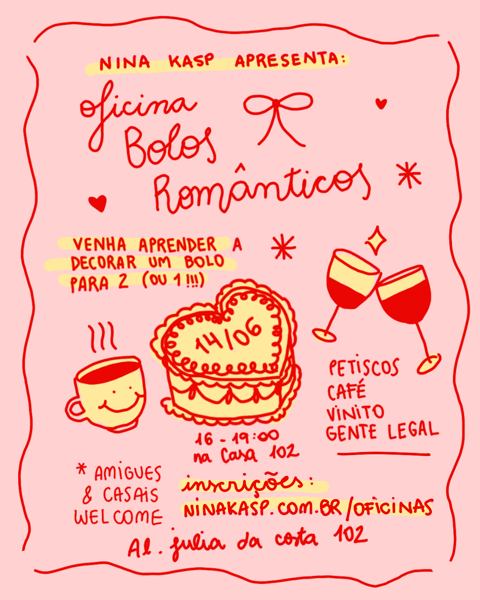 NINA KASP APRESENTA:
oficina
Bolos
Românticos
VENHA APRENDER A
DECORAR UM BOLO
PARA 2 (OU 1 !!!)
14/06
PETISCOS
CAFÉ
VINITO
GENTE LEGAL
16 - 19:00
na Casa 102
* AMIGUES
& CASAIS
WELCOME
inscrições:
NINAKASP.COM.BR/OFICINAS
Al. julia da costa 102